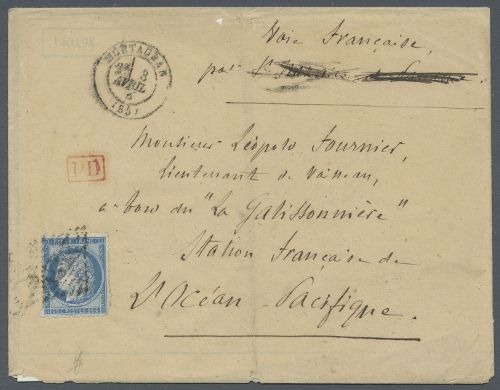 Voie Française,
par St
MONTAUBAN
3
AVRIL
PD
Monsieur Léopold Fournier,
Lieutenant de Vaisseau,
à bord du "La Galissonnière"
Station Française de
L'Océan-Pacifique.
25 C POSTES 25 C